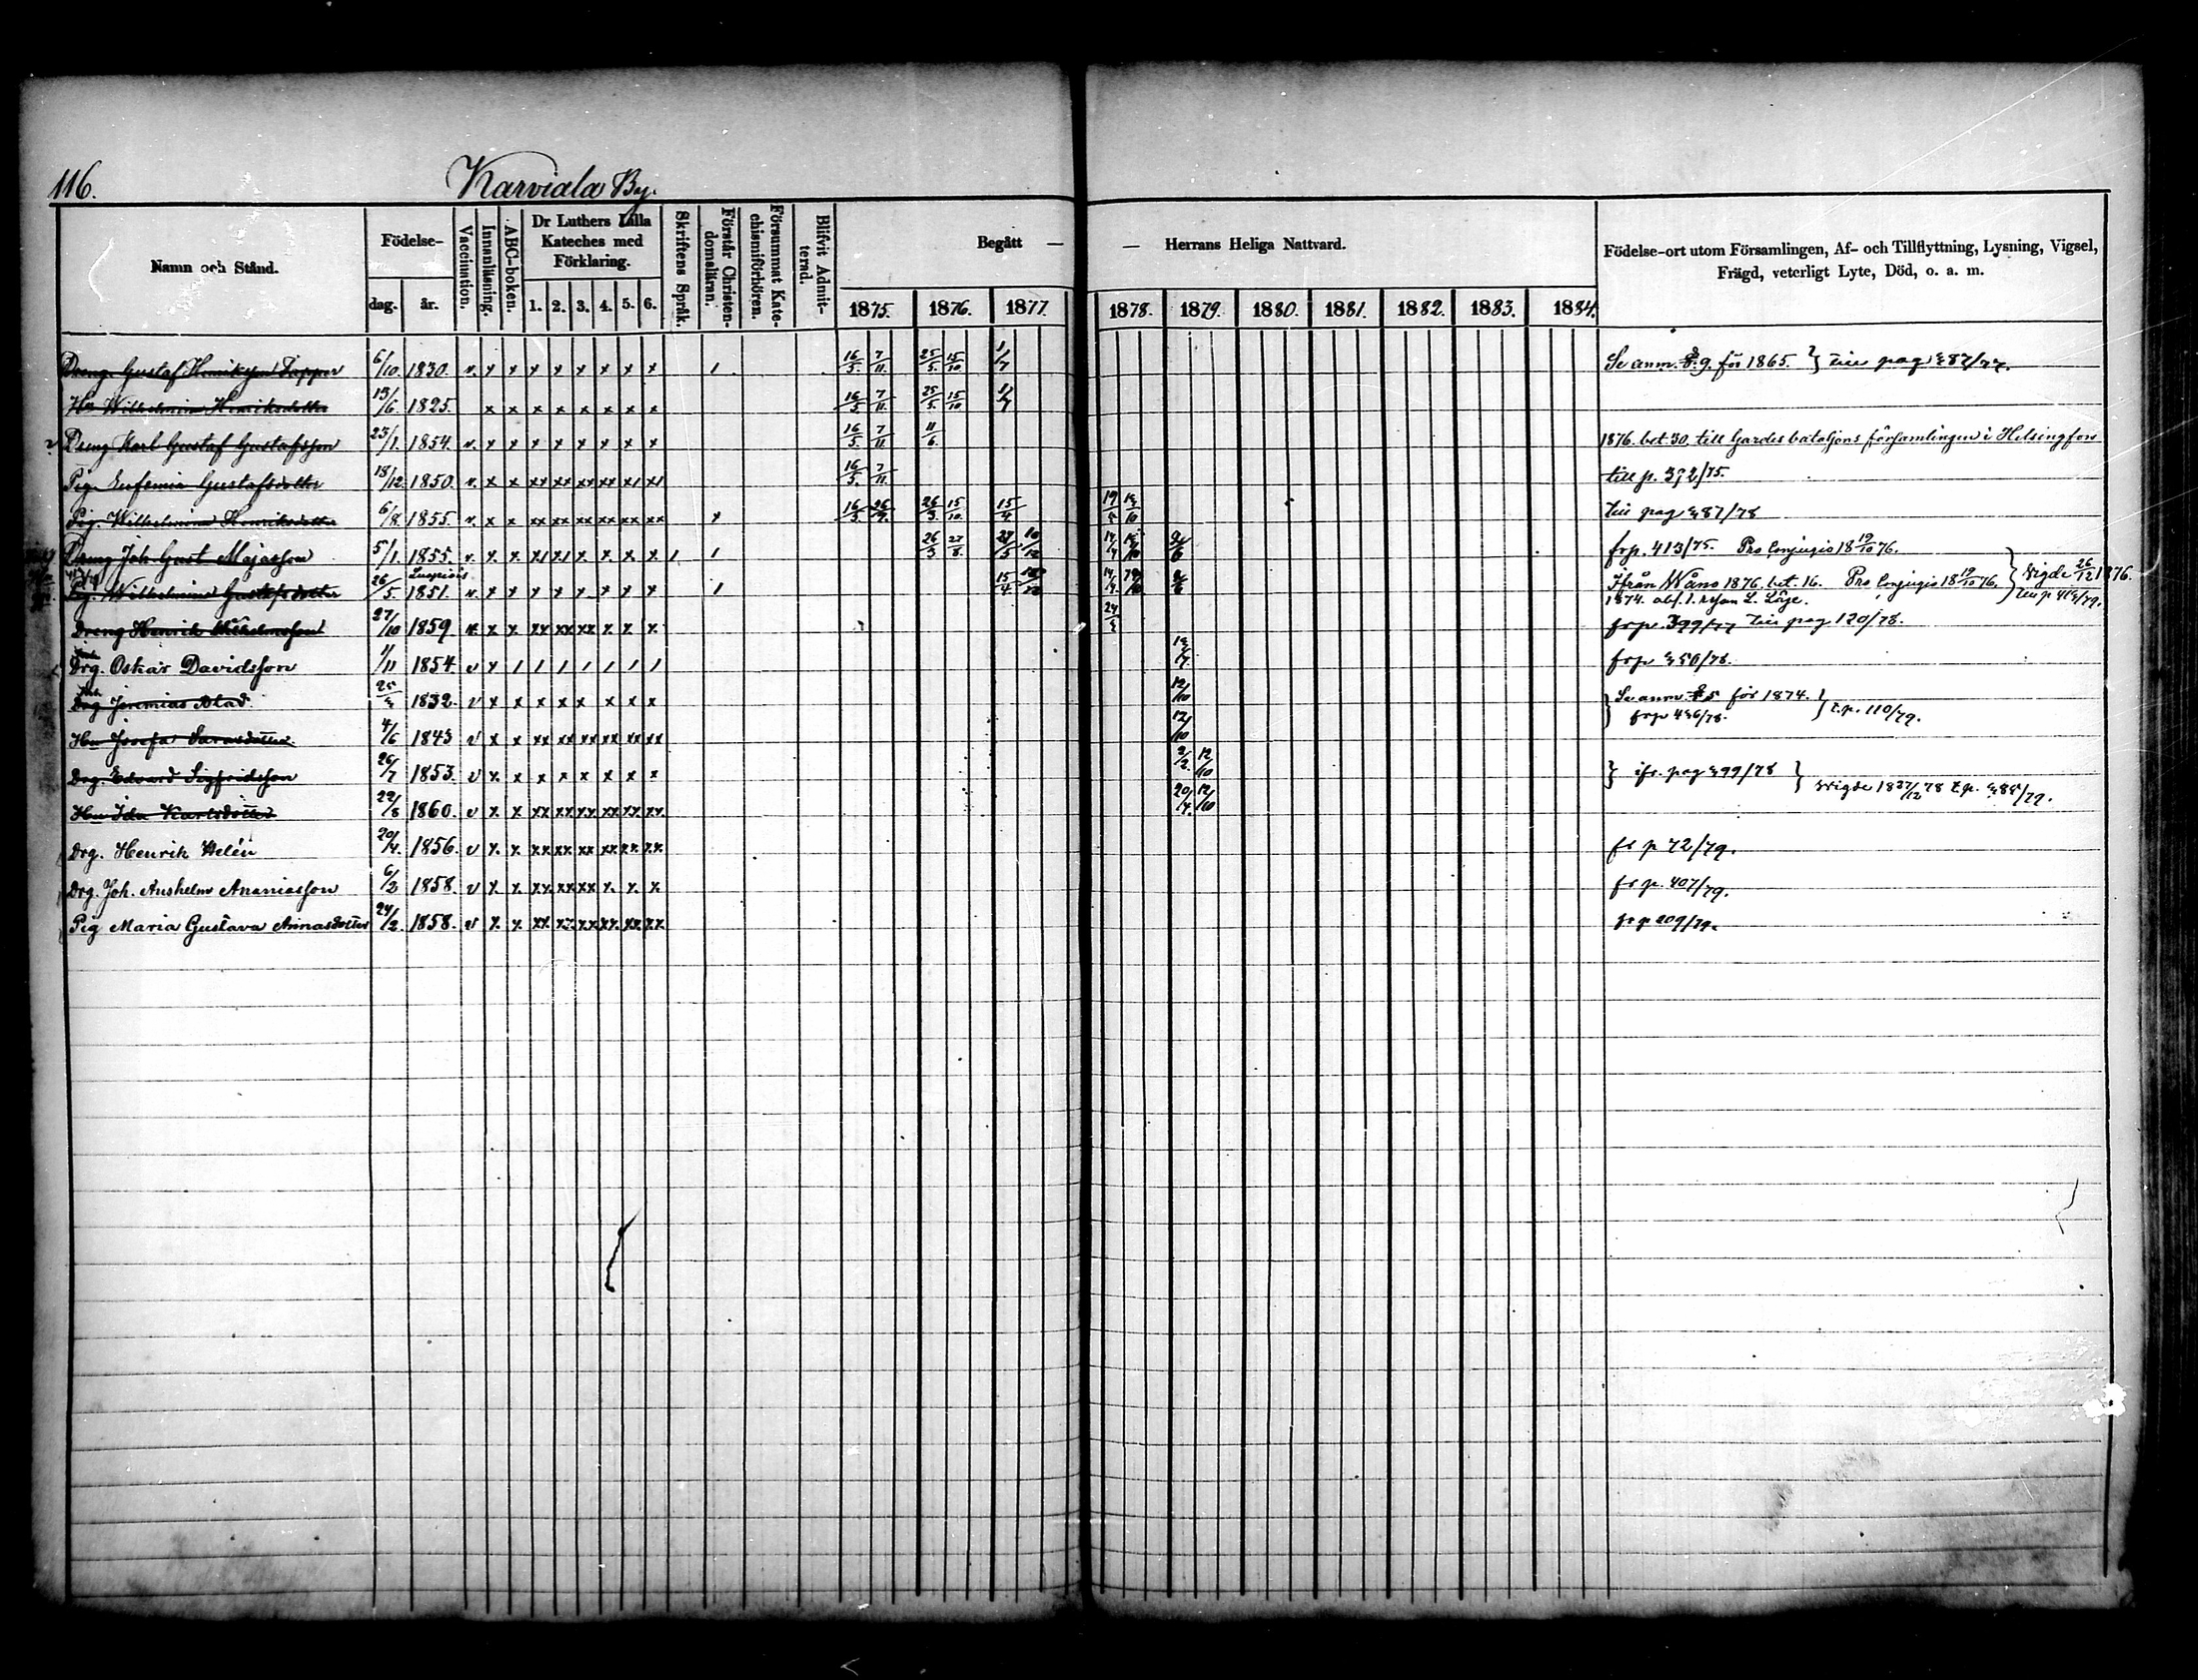 116.
Karviala By.
Namn och Stånd.
Födelse-
dag.
år.
Vaccination.
Innanläsning.
ABC-boken.
Dr Luthers Lilla
Kateches med
Förklaring.
1. 2. 3. 4. 5. 6.
Skriftens Språk.
Förstår Christen-
domsläran.
Försummat Kate-
chismiförhören.
Blifvit Admit-
terad.
Begått —
— Herrans Heliga Nattvard.
1875. 1876. 1877. 1878. 1879. 1880. 1881. 1882. 1883. 1884.
Födelse-ort utom Församlingen, Af- och Tillflyttning, Lysning, Vigsel,
Frägd, veterligt Lyte, Död, o. a. m.
Dreng Gustaf Henriksson Tapper 6/10 1830. v. x x x x x x x x 1 16/5 7/11 25/5 15/10 1/7 Se anm. 9. för 1865. } Till pag 387/77.
Hu Wilhelmina Henriksdotter 13/6 1825. x x x x x x x x 16/5 7/11 25/5 15/10 1/7
Dreng Karl Gustaf Gustafsson 23/1. 1854. v. x x x x x x x x 16/5 7/11 11/6 1876. bet. 30. till Gardes bataljons församlingen i Helsingfors
Pig. Eufemia Gustafsdotter 18/12 1850. v. x x xx xx xx xx xx xx 16/5 7/11 till p. 372/75.
Pig. Wilhelmina Henriksdotter 6/8 1855. v. x x xx xx xx xx xx xx x 26/3 15/10 15/4 Till pag 387/78
Dreng Joh. Gust. Majasson 5/1. 1855. v. x x x x x x 1 1 26/3 27/8 frp. 413/75. Pro Conjugio 18 19/10 76.
Pig. Wilhelmina Gustafsdotter 26/5. 1851. v. x x x x x x x x 1 15/4 Ifrån Wåno 1876. bet. 16. Pro Conjugio 18 19/10 76. } Vigde 26/12 1876.
1874. abs.
Dreng Henrik Wilhelmsson 27/10 1859 x x xx xx xx x x x frp. 399/77 Till pag 120/78.
Drg. Oskar Davidsson 1/11 1854. v x / / / / / / / frp 350/78.
Drg Jeremias Blad. 1832. v x x x x x x x x 12/10 } Se anm. 5 för 1874. } t.p. 110/79.
frp 436/78.
Hu Josefa Saradotter 4/6 1843 v x x xx xx xx xx xx xx 12/10
Drg. Edvard Sigfridsson 26/7 1853. v x x x x x x x x 2/2 12/10 } ifr. pag 399/78 }
Hu Ida Karlsdotter 22/8 1860. v x x xx xx xx xx xx xx 20/4 12/10 Vigde 18 27/12 78 t.p. 385/79.
Drg. Henrik Helén 20/4. 1856. v x x xx xx xx xx xx xx fr p 72/79.
Drg. Joh. Anshelm Ananiasson 6/2 1858. v x x xx xx xx x x x fr p. 407/79.
Pig Maria Gustava Annasdotter 24/2. 1858. v x x xx xx xx xx xx xx fr p 209/79.